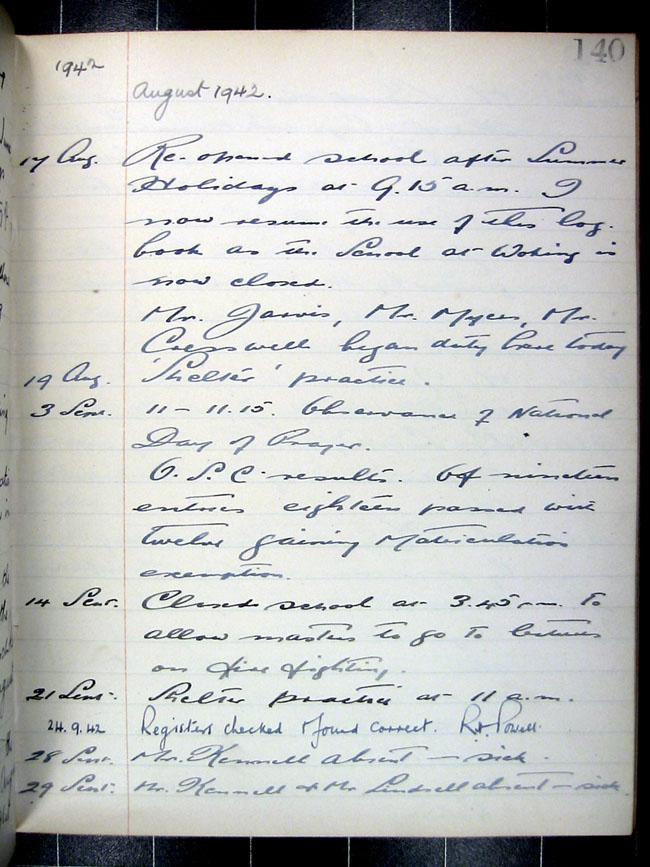 140
1942
August 1942.
17 Aug. Re-opened school after Summer
Holidays at 9.15 a.m. I
now resume the use of this log-
book as the School at Woking is
now closed.
Mr. Jarvis, Mr. Myers, Mr.
Cresswell began duty here today
19 Aug. 'Shelter' practice.
3 Sept. 11 - 11.15. Observance of National
Day of Prayer.
G.S.C. results. Of nineteen
entries eighteen passed with
twelve gaining Matriculation
exemption.
14 Sept. Closed school at 3.45 p.m. to
allow masters to go to lectures
on fire fighting.
21 Sept. Shelter practice at 11 a.m.
24.9.42 Registers checked & found correct. Powell.
28 Sept. Mr. Kennell absent - sick.
29 Sept. Mr. Kennell & Mr. Lindsell absent - sick.